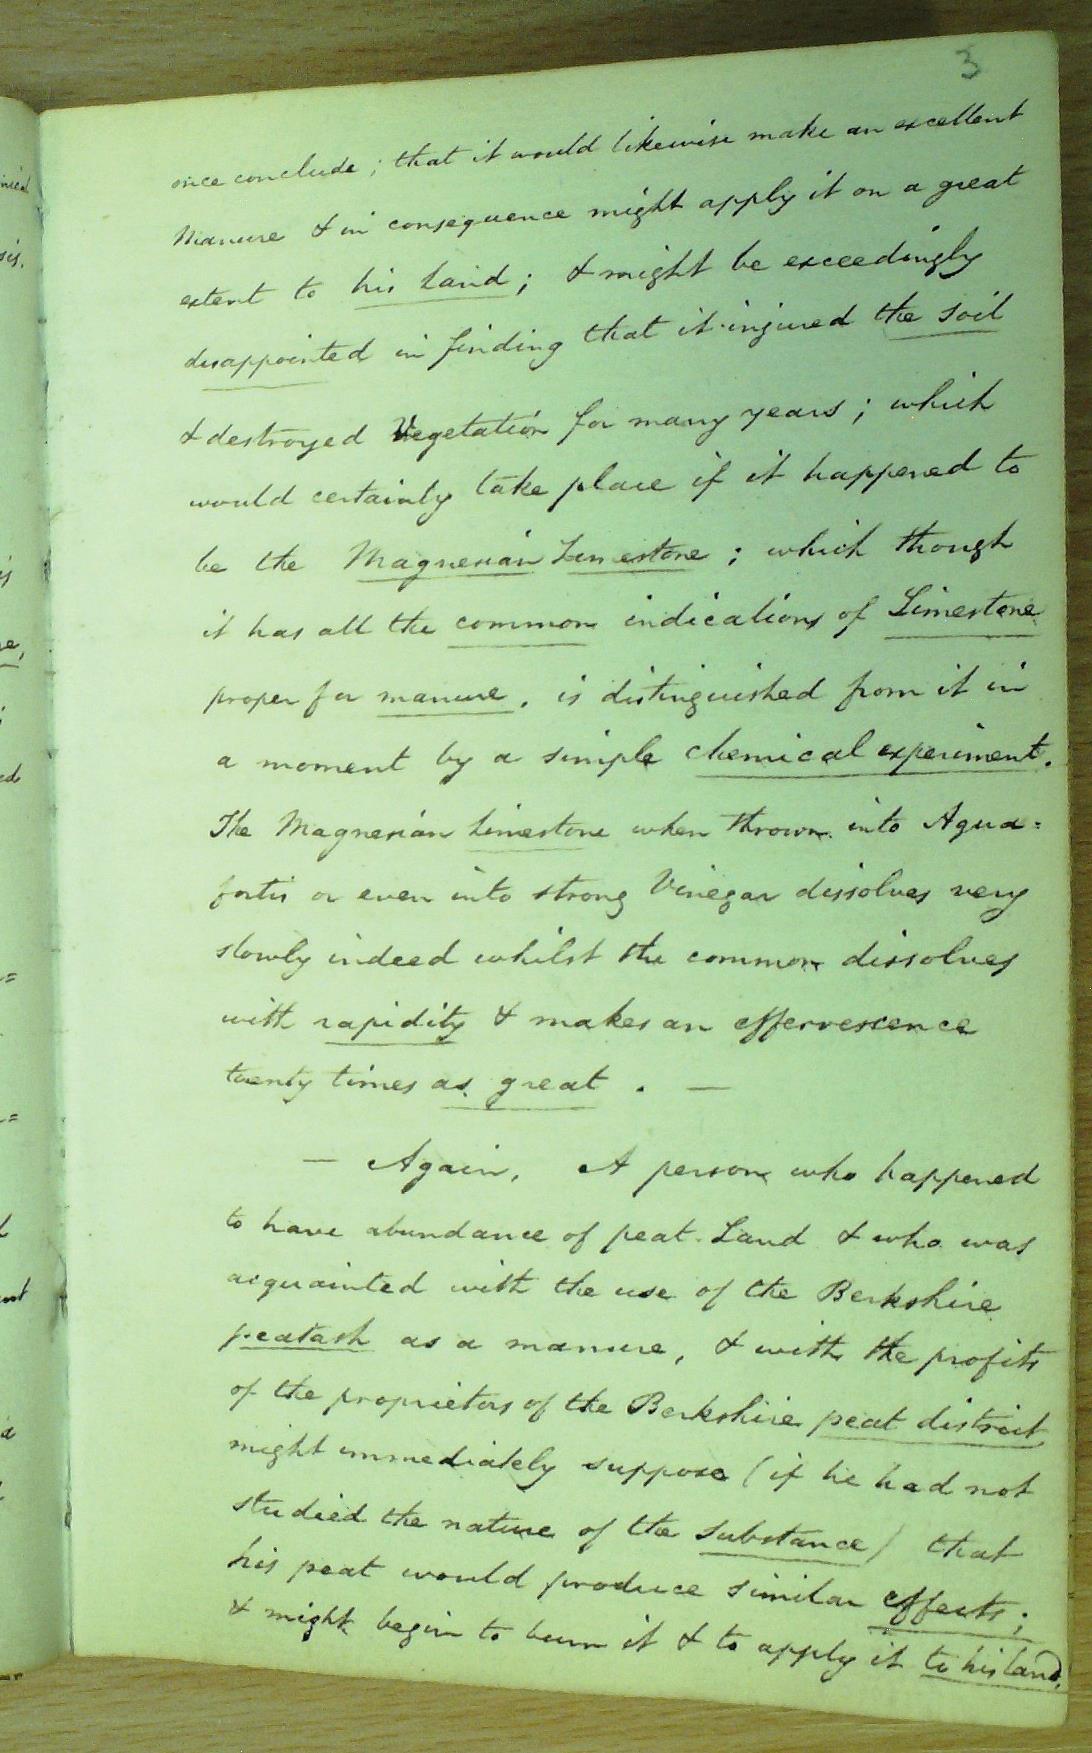 3
once conclude; that it would likewise make an excellent
Manure & in consequence might apply it on a great
extent to his land; & might be exceedingly
disappointed in finding that it injured the soil
& destroyed Vegetation for many years; which
would certainly take place if it happened to
be the Magnesian Limestone; which though
it has all the common indications of Limestone
proper for manure, is distinguished from it in
a moment by a simple chemical experiment.
The Magnesian limestone when thrown into Aqua=
fortis or even into strong Vinegar dissolves very
slowly indeed whilst the common dissolves
with rapidity & makes an effervescence
twenty times as great. —
— Again, A person who happened
to have abundance of peat Land & who was
acquainted with the use of the Berkshire
peatash as a manure, & with the profits
of the proprietors of the Berkshire peat district
might immediately suppose (if he had not
studied the nature of the substance) that
his peat would produce similar effects;
& might begin to burn it & to apply it to his land,